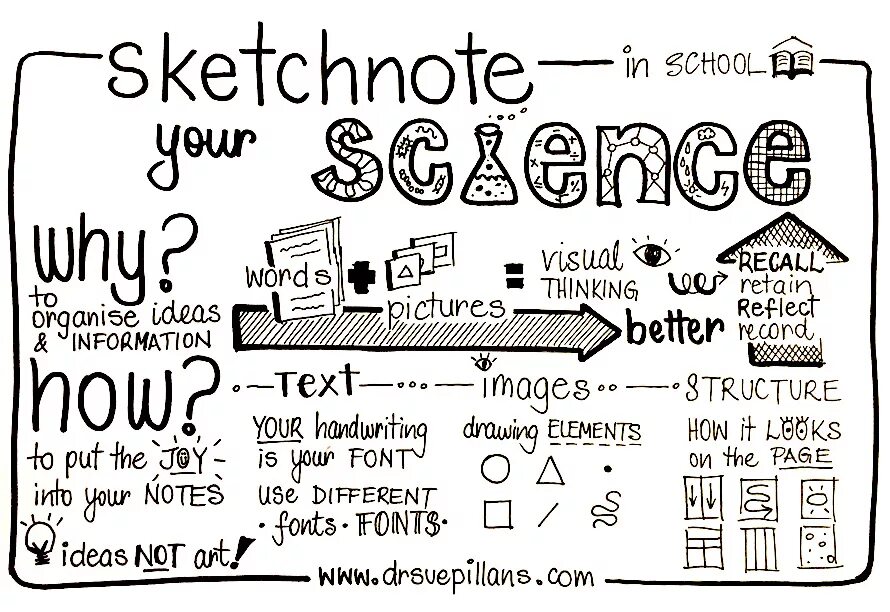 sketchnote in SCHOOL
your science
why?
to
organise ideas
& INFORMATION
words + pictures = visual THINKING
better
RECALL
retain
Reflect
record
how?
to put the JOY
into your NOTES
ideas NOT art!
TEXT
YOUR handwriting
is your FONT
use DIFFERENT
fonts · FONTS
images
drawing ELEMENTS
STRUCTURE
HOW it LOOKS
on the PAGE
www.drsuepillans.com